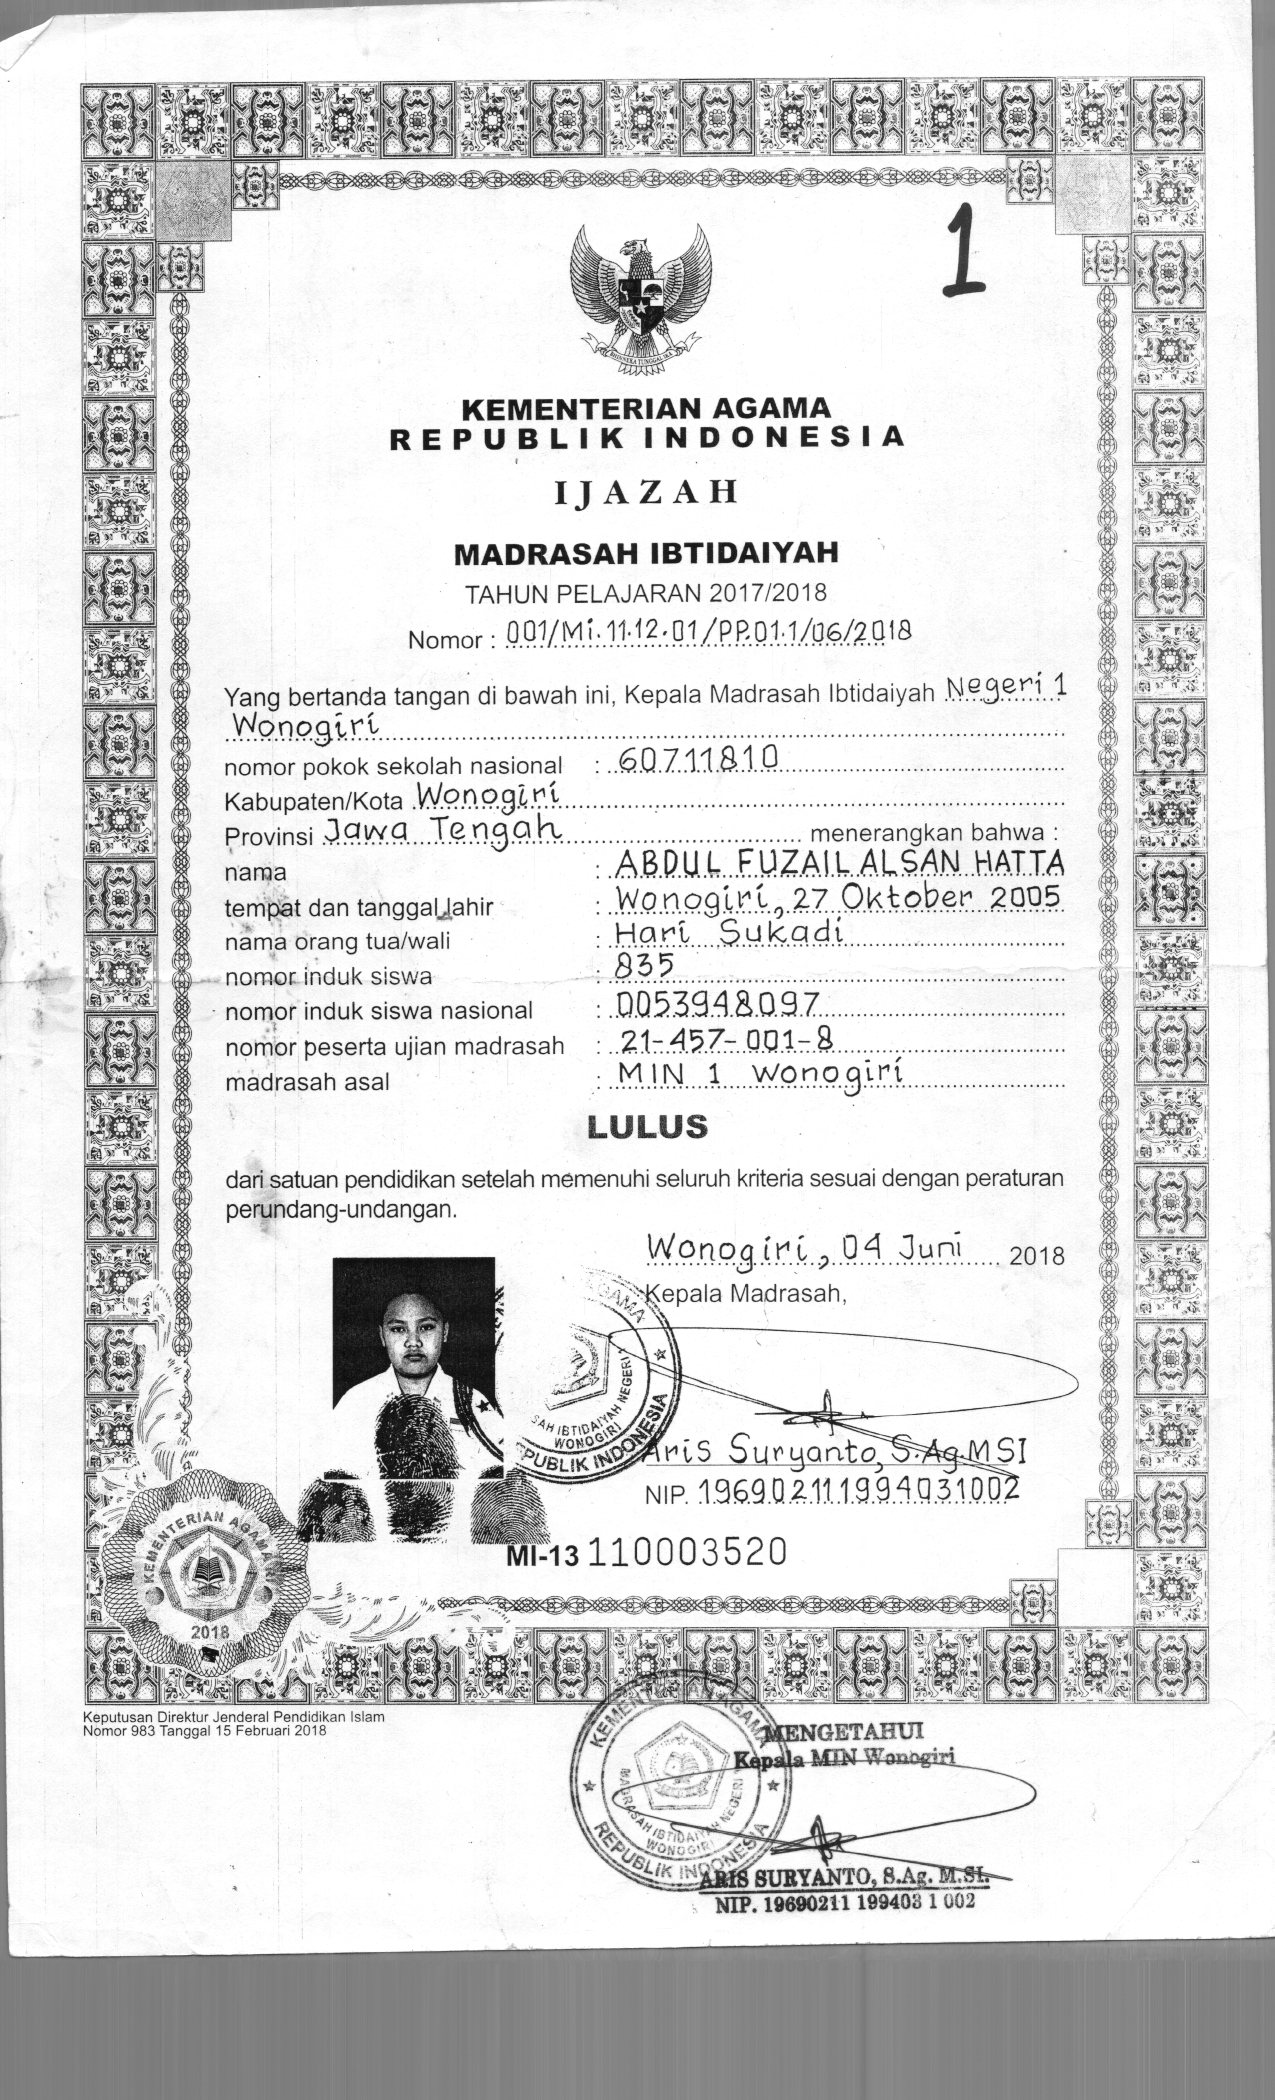 1
BHINNEKA TUNGGAL IKA
KEMENTERIAN AGAMA
REPUBLIK INDONESIA
IJAZAH
MADRASAH IBTIDAIYAH
TAHUN PELAJARAN 2017/2018
Nomor : 001/Mi.11.12.01/PP.01.1/06/2018
Yang bertanda tangan di bawah ini, Kepala Madrasah Ibtidaiyah Negeri 1
Wonogiri
nomor pokok sekolah nasional : 60711810
Kabupaten/Kota Wonogiri
Provinsi Jawa Tengah menerangkan bahwa :
nama : ABDUL FUZAIL ALSAN HATTA
tempat dan tanggal lahir : Wonogiri, 27 Oktober 2005
nama orang tua/wali : Hari Sukadi
nomor induk siswa : 835
nomor induk siswa nasional : 0053948097
nomor peserta ujian madrasah : 21-457-001-8
madrasah asal : MIN 1 Wonogiri
LULUS
dari satuan pendidikan setelah memenuhi seluruh kriteria sesuai dengan peraturan
perundang-undangan.
Wonogiri, 04 Juni 2018
Kepala Madrasah,
AGAMA
SAH IBTIDAIYAH NEGERI
WONOGIRI
PUBLIK INDONESIA
Aris Suryanto, S.Ag.MSI
NIP. 196902111994031002
MI-13 110003520
KEMENTERIAN AGAMA RI
2018
Keputusan Direktur Jenderal Pendidikan Islam
Nomor 983 Tanggal 15 Februari 2018
KEMENTERIAN AGAMA
MADRASAH IBTIDAIYAH NEGERI
WONOGIRI
REPUBLIK INDONESIA
MENGETAHUI
Kepala MIN Wonogiri
ARIS SURYANTO, S.Ag. M.SI.
NIP. 19690211 199403 1 002